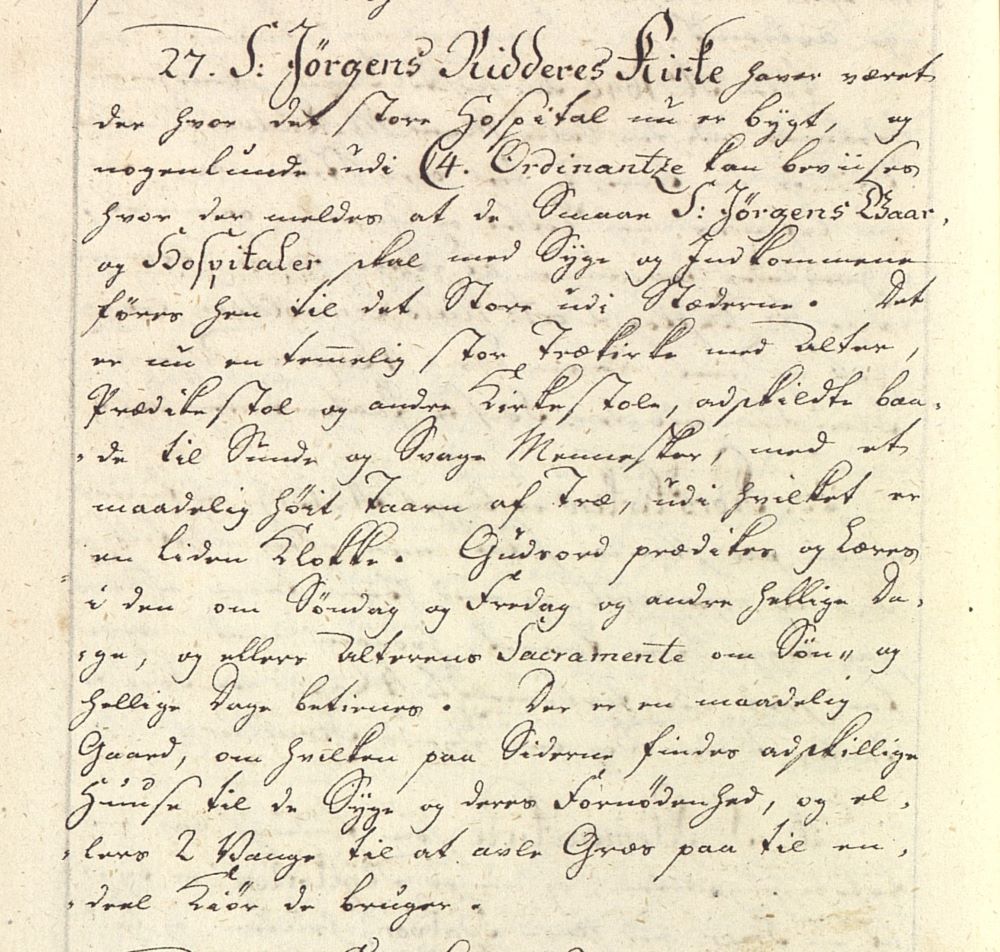 27. S: Jörgens Ridderes Kirke haver været
der hvor det store Hospital nu er bÿgt, og
nogenlunde udi C4. Ordinantze kan beviises
hvor der meldes at de Smaae S: Jörgens Gaar,
og Hospitaler skal med Syge og Indkommene
føres hen til det Store udi Stæderne. Det
er nu en temmelig stor Trækirke med Alter,
Prædikestol og andre Kirkestole, adskildte baa,
,de til Sunde og Svage Mennesker, med et
maadelig høit Taarn af Træ, udi hvilket er
en liden Klokke. Gudsord prædikes og Læres
i den om Søndag og Fredag og andre hellige Da,
,ge, og ellers Alterens Sacramente om Søn,, og
hellige Dage betienes. Der er en maadelig
Gaard, om hvilken paa Siderne findes adskillige
Huuse til de Syge og deres Fornødenhed, og el,
,lers 2 Vange til at avle Græs paa til en,
,deel Kiør de bruger.